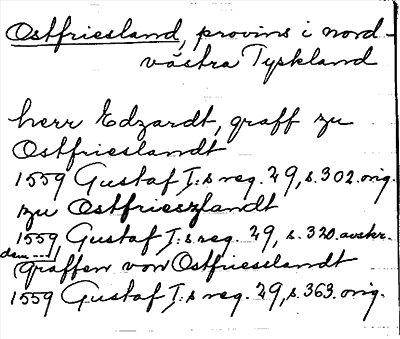 Ostfriesland, provins i nord-
västra Tyskland
herr Edzardt, graff zu
Ostfrieslandt
1559 Gustaf I:s reg. 29, s. 302. orig.
zu Ostfrieszlandt
1559, Gustaf I:s reg. 29, s. 320. avskr.
dem --- graffen von Ostfrieselandt
1559 Gustaf I:s reg. 29, s. 363. orig.